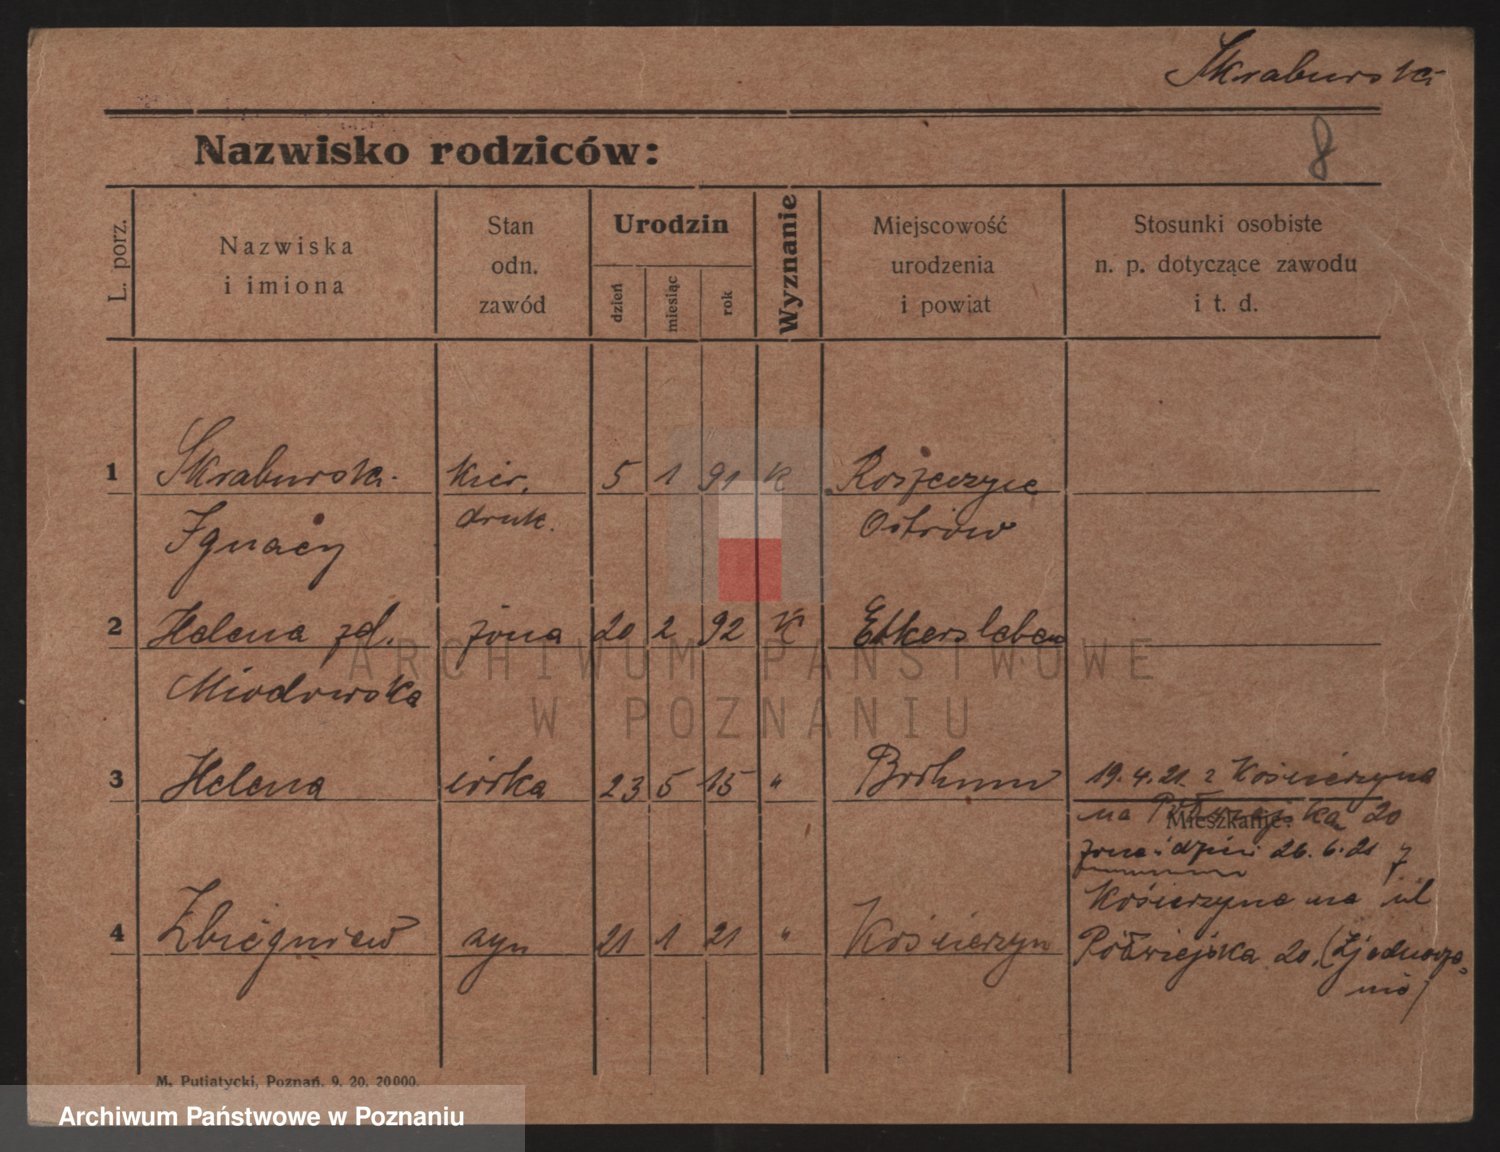 Skraburski
8
Nazwisko rodziców:
L. porz.
Nazwiska
i imiona
Stan
odn.
zawód
Urodzin
dzień
miesiąc
rok
Wyznanie
Miejscowość
urodzenia
i powiat
Stosunki osobiste
n. p. dotyczące zawodu
i t. d.
1 Skraburski kier. 5 1 91 K
Ignacy druk. Ostrów
2 Helena zd. żona 20 2 92 K
Miodowska
3 Helena córka 23 5 15 " Bochum 19.4.21 z Kościerzyna
na Półwiejska 20
Mieszkanie:
żona i dzieci 26.6.21 z
Kościerzyna na ul
4 Zbiegniew syn 21 1 21 " Kościerzyn Półwiejska 20. (Zjednoczo-
nio)
M. Putiatycki, Poznań. 9. 20. 20000.
ARCHIWUM PAŃSTWOWE
W POZNANIU
Archiwum Państwowe w Poznaniu